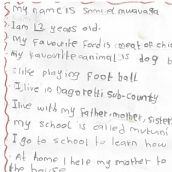 My name is
I am 13 years old.
My favourite Food is meat of chi
My favourite animal is dog b
I like playing Foot ball
I live in Dagoretti sub-county
I live with my father, mother, sister
my school is called mutuni
I go to school to learn how
At home I help my mother to
the house